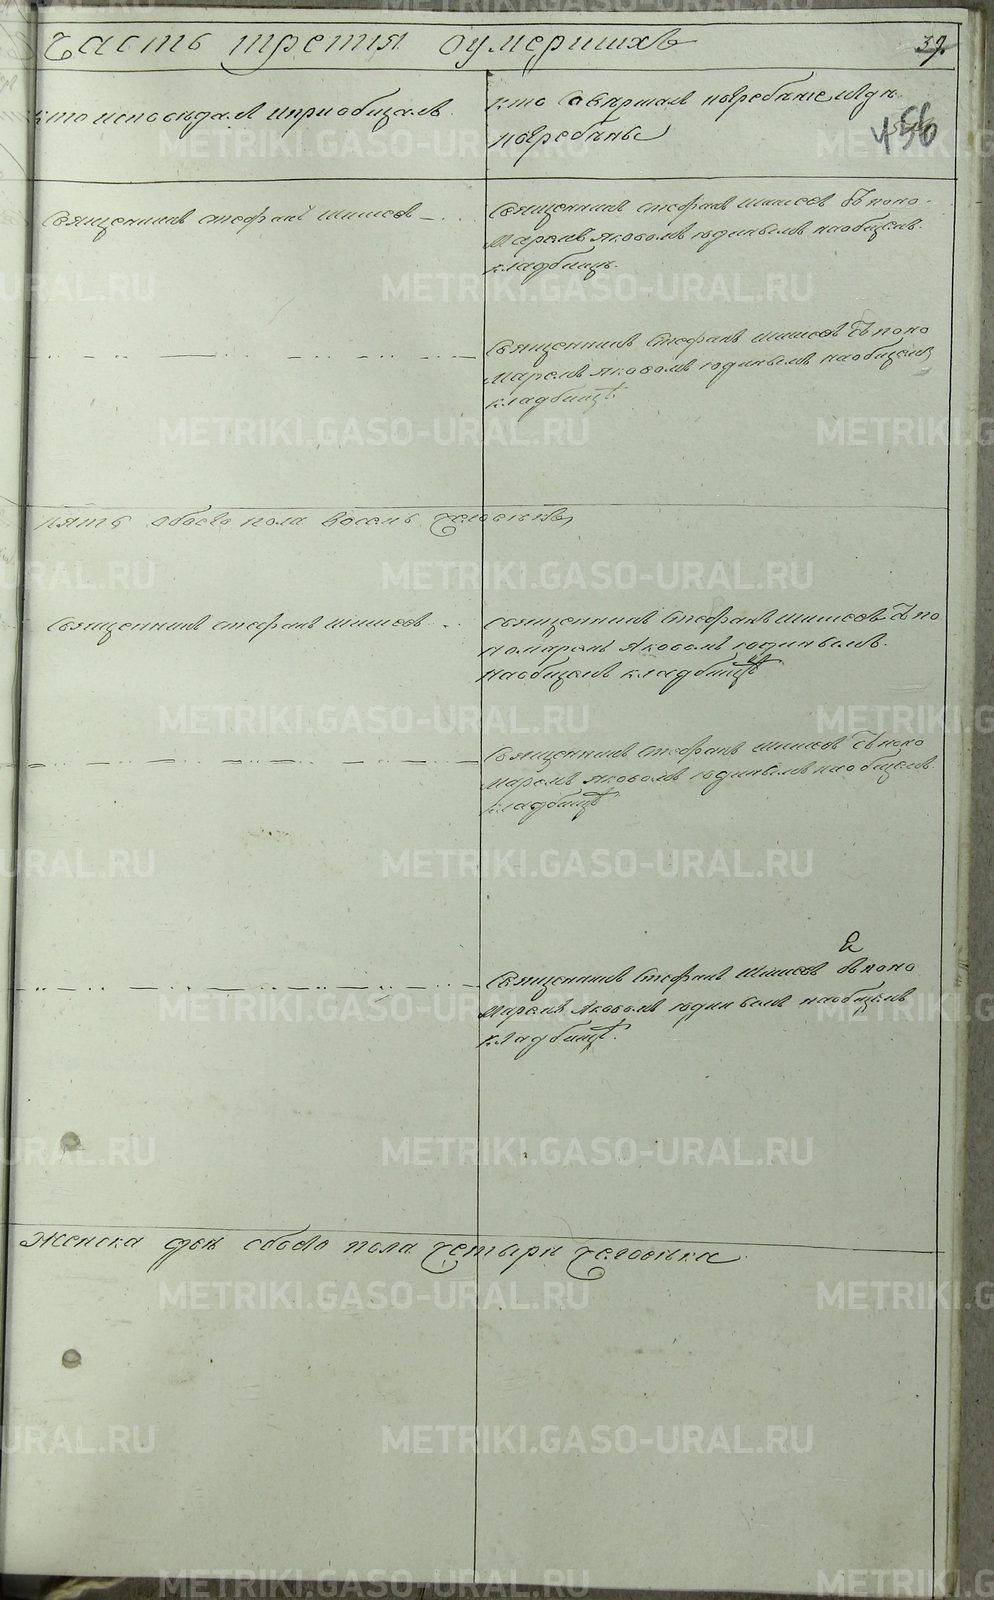 Часть третия оумершихъ
39.
456
кто исповѣдалъ и приобщалъ.
кто совершалъ погребѣние и гдѣ
погребѣны
Священникъ Стефанъ Шишовъ
Священникъ Стефанъ Шишовъ съ поно-
маремъ Яковомъ Юдинымъ на общемъ
кладбищѣ.
Священникъ Стефанъ Шишовъ съ поно
маремъ Яковомъ Юдинымъ на общемъ
кладбищѣ
пять обоево пола восемь человѣкъ
Священникъ Стефанъ Шишовъ
Священникъ Стефанъ Шишовъ съ по
номаремъ Яковомъ Юдинымъ
на общемъ кладбищѣ
Священникъ Стефанъ Шишовъ съ поно
маремъ Яковомъ Юдинымъ на общемъ
кладбищѣ
Священникъ Стефанъ Шишовъ съ поно
маремъ Яковомъ Юдинымъ на общемъ
кладбищѣ.
Женска двѣ обоево пола четыри человѣка
METRIKI.GASO-URAL.RU